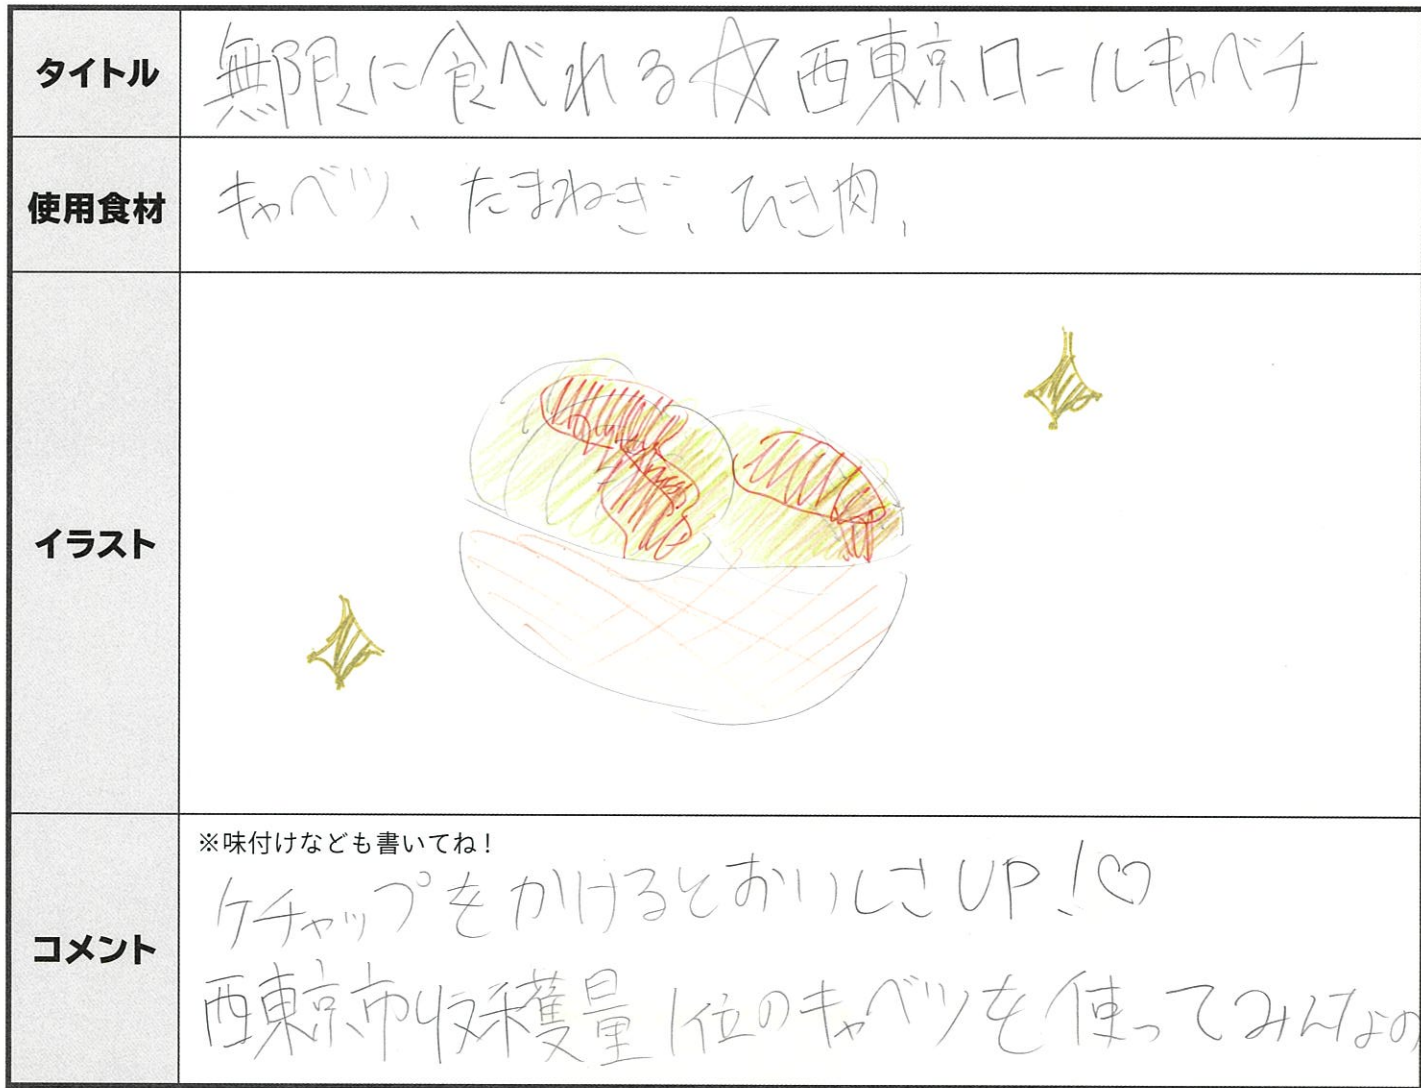 タイトル
無限に食べれる☆西東京ロールキャベチ
使用食材
キャベツ、たまねぎ、ひき肉、
イラスト
コメント
※味付けなども書いてね!
ケチャップをかけるとおいしさUP!♡
西東京市収穫量1位のキャベツを使ってみんなの